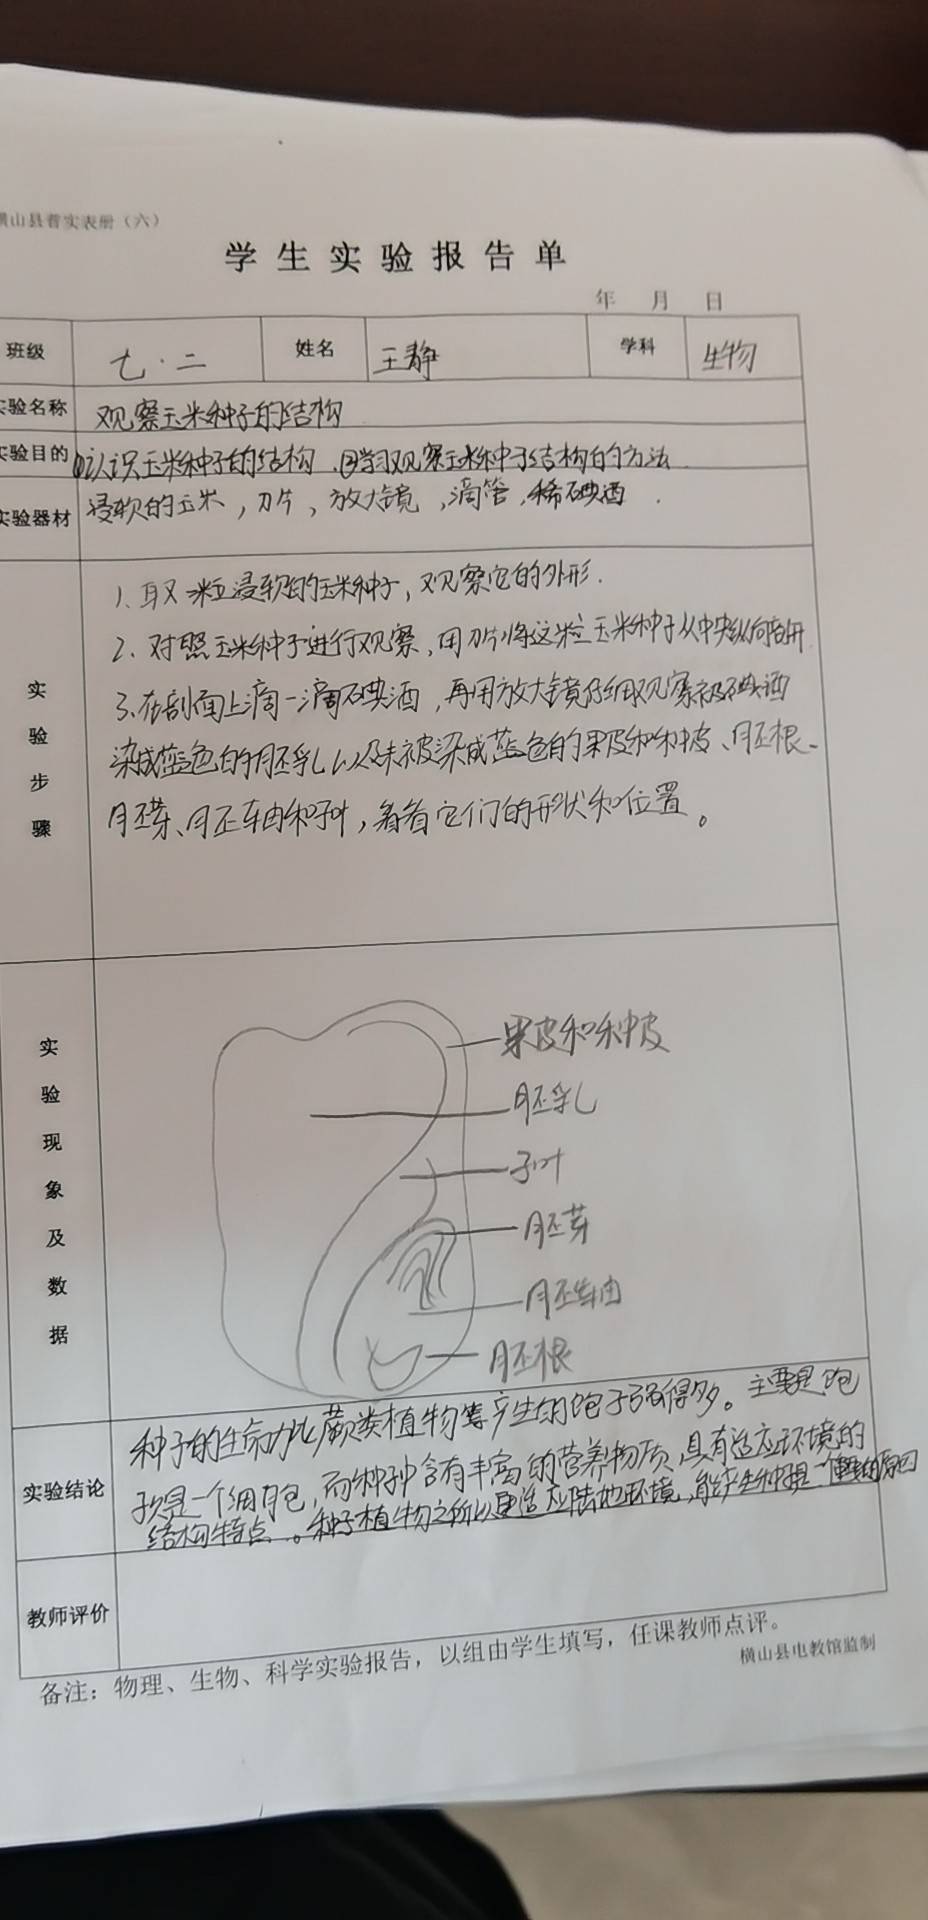 横山县普实表册（六）
学生实验报告单
年 月 日
班级 七.二 姓名 王静 学科 生物
实验名称 观察玉米种子的结构
实验目的 ①认识玉米种子的结构.②学习观察玉米种子结构的方法
实验器材 浸软的玉米，刀片，放大镜，滴管，稀碘酒.
实验步骤
1.取一粒浸软的玉米种子，观察它的外形.
2.对照玉米种子进行观察，用刀片将这粒玉米种子从中央纵向剖开
3.在剖面上滴一滴碘酒，再用放大镜仔细观察被碘酒
染成蓝色的胚乳以及未被染成蓝色的果皮和种皮、胚根、
胚芽、胚轴和子叶，看看它们的形状和位置。
实验现象及数据
果皮和种皮
胚乳
子叶
胚芽
胚轴
胚根
实验结论
种子的生命力比蕨类植物等产生的孢子强得多。主要是孢
子只是一个细胞，而种子中含有丰富的营养物质，具有适应环境的
结构特点。种子植物之所以更适应陆地环境，能产生种子是一个重要的原因
教师评价
备注：物理、生物、科学实验报告，以组由学生填写，任课教师点评。
横山县电教馆监制